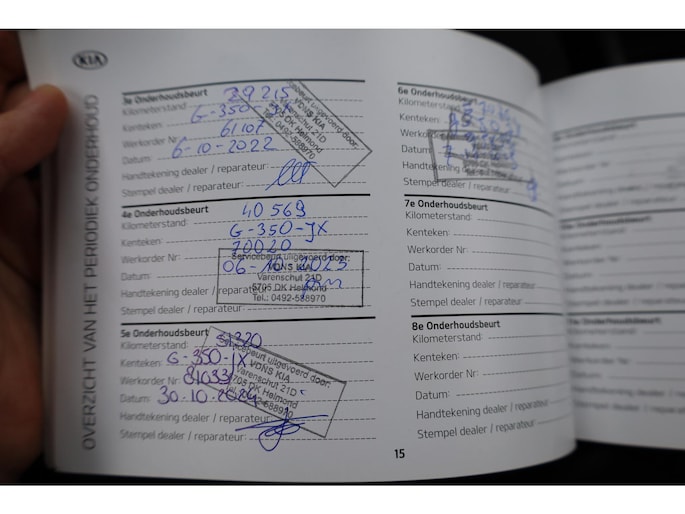 KIA
OVERZICHT VAN HET PERIODIEK ONDERHOUD
3e Onderhoudsbeurt
Kilometerstand: 29215
Kenteken: G-350-JX
Werkorder Nr: 61107
Datum: 6-10-2022
Handtekening dealer / reparateur:
Stempel dealer / reparateur:
Servicebeurt uitgevoerd door:
VDNS KIA
Varenschut 21D
5705 DK Helmond
Tel.: 0492-588970
4e Onderhoudsbeurt
Kilometerstand: 40569
Kenteken: G-350-JX
Werkorder Nr: 70020
Datum: 06-10-2023
Handtekening dealer / reparateur:
Stempel dealer / reparateur:
Servicebeurt uitgevoerd door:
VDNS KIA
Varenschut 21D
5705 DK Helmond
Tel.: 0492-588970
5e Onderhoudsbeurt
Kilometerstand: 51320
Kenteken: G-350-JX
Werkorder Nr: 81033
Datum: 30-10-2024
Handtekening dealer / reparateur:
Stempel dealer / reparateur:
Servicebeurt uitgevoerd door:
VDNS KIA
Varenschut 21D
5705 DK Helmond
Tel.: 0492-588970
6e Onderhoudsbeurt
Kilometerstand:
Kenteken:
Werkorder Nr:
Datum:
Handtekening dealer / reparateur:
Stempel dealer / reparateur:
7e Onderhoudsbeurt
Kilometerstand:
Kenteken:
Werkorder Nr:
Datum:
Handtekening dealer / reparateur:
Stempel dealer / reparateur:
8e Onderhoudsbeurt
Kilometerstand:
Kenteken:
Werkorder Nr:
Datum:
Handtekening dealer / reparateur:
Stempel dealer / reparateur:
15